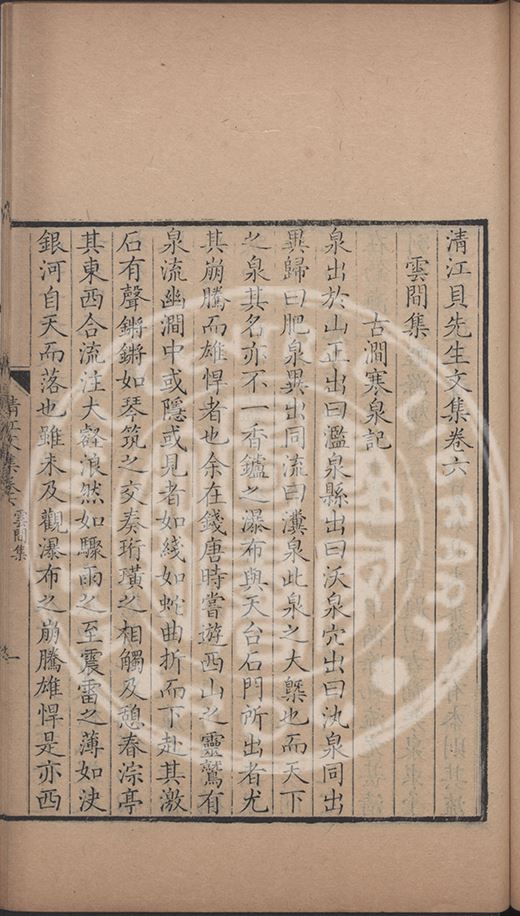 清江貝先生文集卷六
雲間集
古澗寒泉記
泉出於山正出曰濫泉縣出曰沃泉穴出曰氿泉同出
異歸曰肥泉異出同流曰瀵泉此泉之大槩也而天下
之泉其名亦不一香鑪之瀑布與天台石門所出者尤
其崩騰而雄悍者也余在錢唐時嘗遊西山之靈鷲有
泉流幽澗中或隱或見者如綫如蛇曲折而下赴其激
石有聲鏘鏘如琴筑之交奏珩璜之相觸及憩春淙亭
其東西合流注大壑浪然如驟雨之至震雷之薄如決
銀河自天而落也雖未及觀瀑布之崩騰雄悍是亦西
清江文集卷六 雲間集